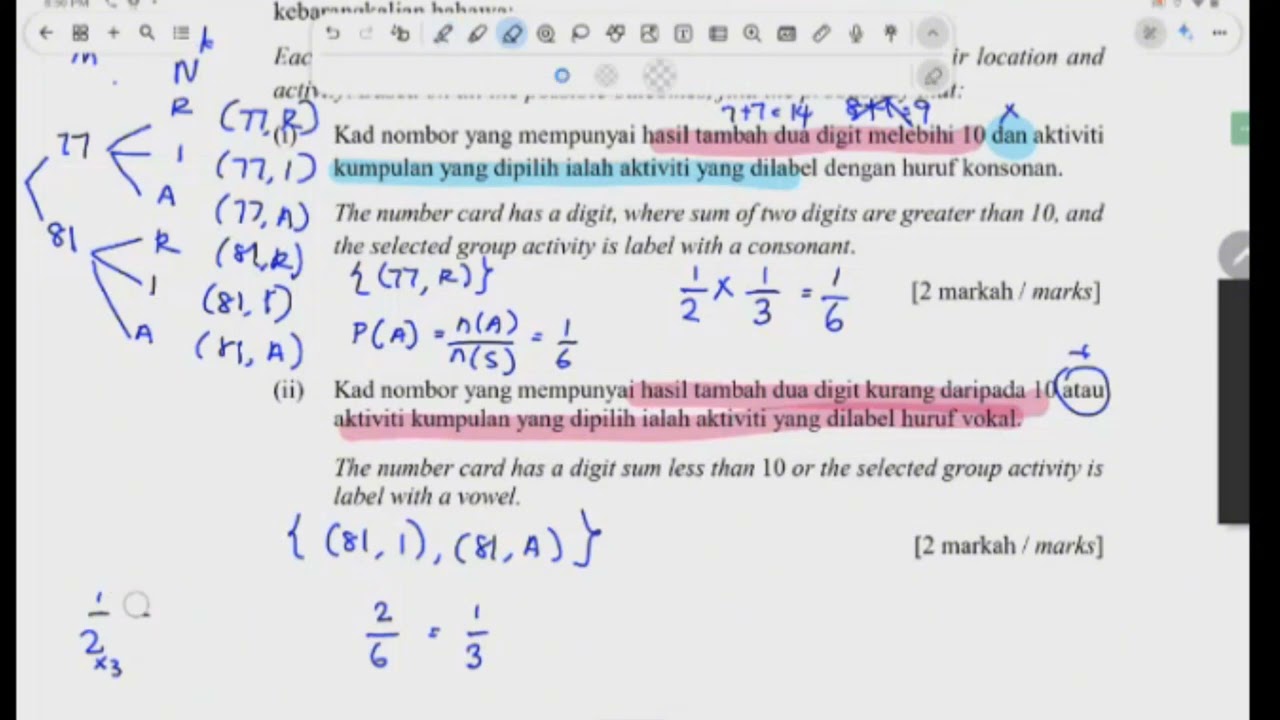 N
k
R
77
1
A
81
R
1
A
(77, R)
(77, 1)
(77, A)
(81, R)
(81, 1)
(81, A)
Eac
ir location and
7+7=14
(i) Kad nombor yang mempunyai hasil tambah dua digit melebihi 10 dan aktiviti
kumpulan yang dipilih ialah aktiviti yang dilabel dengan huruf konsonan.
The number card has a digit, where sum of two digits are greater than 10, and
the selected group activity is label with a consonant.
{(77, R)}
P(A) = n(A)/n(S) = 1/6
1/2 × 1/3 = 1/6
[2 markah / marks]
(ii) Kad nombor yang mempunyai hasil tambah dua digit kurang daripada 10 atau
aktiviti kumpulan yang dipilih ialah aktiviti yang dilabel huruf vokal.
The number card has a digit sum less than 10 or the selected group activity is
label with a vowel.
{ (81, 1), (81, A) }
[2 markah / marks]
2/6 = 1/3
1/2 ×3